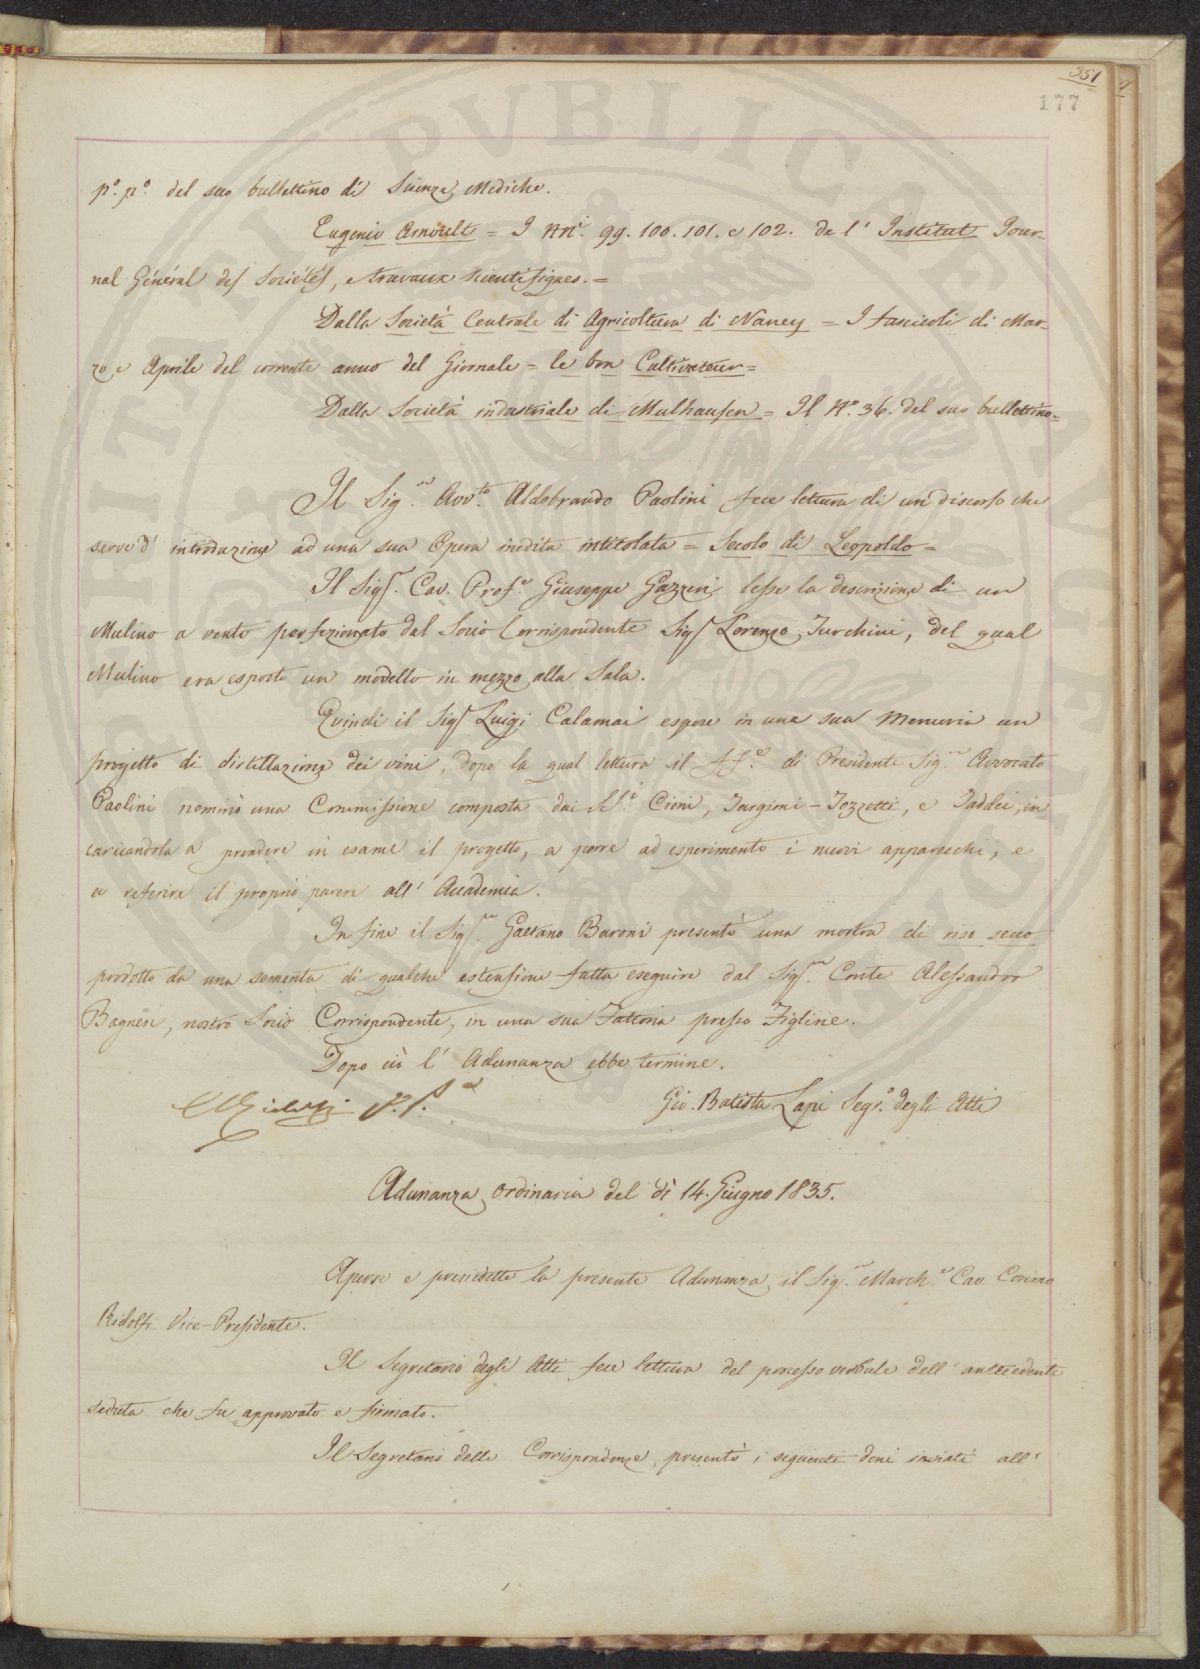 351
177
p.º p.º del suo bullettino di Scienze Mediche.
Eugenio Arnoult = I NNⁱ. 99. 100. 101. e 102. de l' Institut Jour-
nal Général des Sociétés, e travaux scientifiques. =
Dalla Società Centrale di Agricoltura di Nancy = I fascicoli di Mar-
zo e Aprile del corrente anno del Giornale = le bon Cultivateur =
Dalla Società industriale di Mulhausen = Il Nº. 36. del suo bullettino =
Il Sig.ʳᵉ Avv.ᵗᵒ Aldobrando Paolini fece lettura di un discorso che
serve d' introduzione ad una sua Opera inedita intitolata = Secolo di Leopoldo =
Il Sigʳ. Cav. Prof.ᵉ Giuseppe Gazzeri lesse la descrizione di un
Mulino a vento perfezionato dal Socio Corrispondente Sigʳ Lorenzo Turchini, del qual
Mulino era esposto un modello in mezzo alla Sala.
Quindi il Sigʳ Luigi Calamai espose in una sua Memoria un
progetto di distillazione dei vini, dopo la qual lettura il ff.ᵉ di Presidente Sig.ʳᵉ Avvocato
Paolini nominò una Commissione composta dai SS.ⁱ Cioni, Targioni-Tozzetti, e Taddei, in-
caricandola a prendere in esame il progetto, a porre ad esperimento i nuovi apparecchi, e
a referire il proprio parere all' Accademia.
In fine il Sigʳᵉ. Gaetano Baroni presentò una mostra di riso secco
prodotto da una sementa di qualche estensione fatta eseguire dal Sigʳᵉ. Conte Alessandro
Bagnesi, nostro Socio Corrispondente, in una sua Fattoria presso Figline.
Dopo ciò l' Adunanza ebbe termine.
C Ridolfi V. P.ᵉ
Gio. Batista Lapi Segr.º degli Atti
Adunanza ordinaria del dì 14. Giugno 1835.
Aperse e presiedette la presente Adunanza il Sig.ʳᵉ March.ᵉ Cav. Cosimo
Ridolfi Vice-Presidente.
Il Segretario degli Atti fece lettura del processo verbale dell' antecedente
seduta che fu approvato e firmato.
Il Segretario delle Corrispondenze presentò i seguenti doni inviati all'